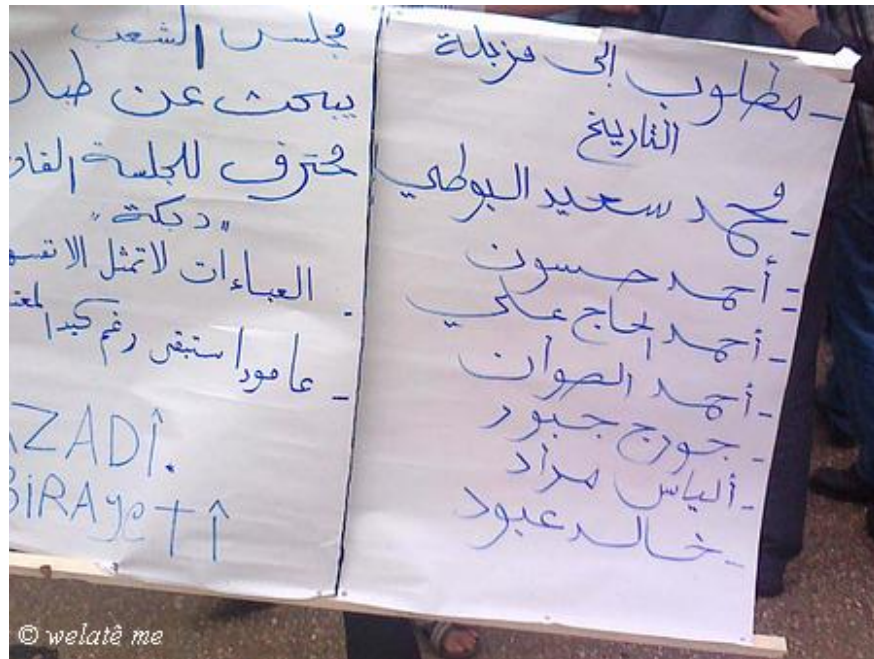 - مطلوب إلى مزبلة
التاريخ
- محمد سعيد البوطي
= أحمد حسون
- أحمد الحاج علي
- أحمد الصوان
- جورج جبور
- ألياس مراد
- خالد عبود
مجلس الشعب
يبحث عن طبال
محترف للجلسة
"دبكة"
. العباءات لاتمثل الا
- عامودا ستبقى رغم كيد
AZADÎ.
BiRAYeTÎ
© welatê me